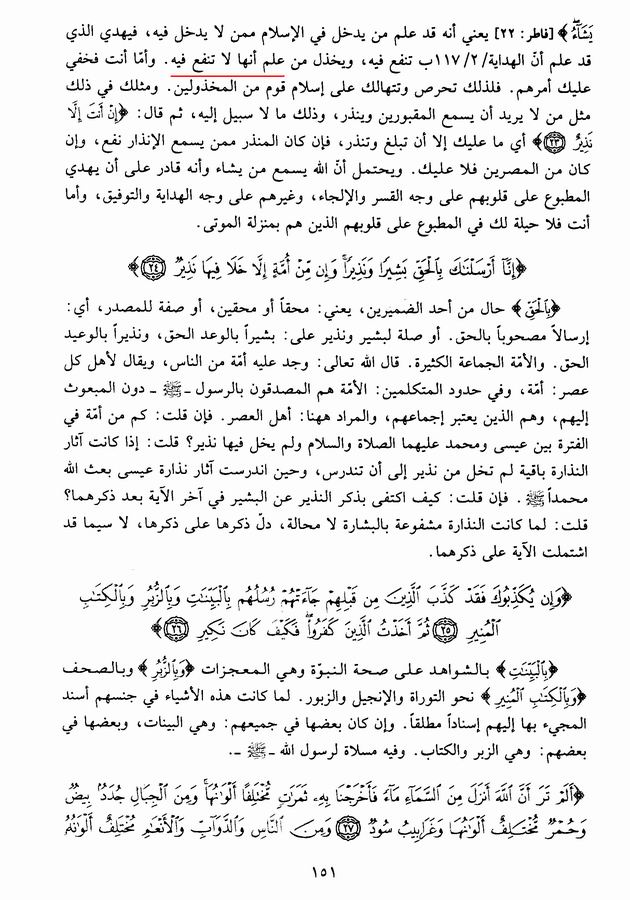 يَشَآءُۖ﴾ [فاطر: ٢٢] يعني أنه قد علم من يدخل في الإسلام ممن لا يدخل فيه، فيهدي الذي
قد علم أنّ الهداية/ ٢/ ١١٧ب تنفع فيه، ويخذل من علم أنها لا تنفع فيه. وأمّا أنت فخفي
عليك أمرهم. فلذلك تحرص وتتهالك على إسلام قوم من المخذولين. ومثلك في ذلك
مثل من لا يريد أن يسمع المقبورين وينذر، وذلك ما لا سبيل إليه، ثم قال: ﴿إِنْ أَنتَ إِلَّا
نَذِيرٌ ﴿٢٣﴾﴾ أي ما عليك إلا أن تبلغ وتنذر، فإن كان المنذر ممن يسمع الإنذار نفع، وإن
كان من المصرين فلا عليك. ويحتمل أنّ الله يسمع من يشاء وأنه قادر على أن يهدي
المطبوع على قلوبهم على وجه القسر والإلجاء، وغيرهم على وجه الهداية والتوفيق، وأما
أنت فلا حيلة لك في المطبوع على قلوبهم الذين هم بمنزلة الموتى.
﴿إِنَّآ أَرْسَلْنَٰكَ بِٱلْحَقِّ بَشِيرًا وَنَذِيرًاۚ وَإِن مِّنْ أُمَّةٍ إِلَّا خَلَا فِيهَا نَذِيرٌ ﴿٢٤﴾﴾
﴿بِٱلْحَقِّ﴾ حال من أحد الضميرين، يعني: محقاً أو محقين، أو صفة للمصدر، أي:
إرسالاً مصحوباً بالحق. أو صلة لبشير ونذير على: بشيراً بالوعد الحق، ونذيراً بالوعيد
الحق. والأمّة الجماعة الكثيرة. قال الله تعالى: وجد عليه أمّة من الناس، ويقال لأهل كل
عصر: أمّة، وفي حدود المتكلمين: الأمّة هم المصدقون بالرسول ـ ﷺ ـ دون المبعوث
إليهم، وهم الذين يعتبر إجماعهم، والمراد ههنا: أهل العصر. فإن قلت: كم من أمّة في
الفترة بين عيسى ومحمد عليهما الصلاة والسلام ولم يخل فيها نذير؟ قلت: إذا كانت آثار
النذارة باقية لم تخل من نذير إلى أن تندرس، وحين اندرست آثار نذارة عيسى بعث الله
محمداً ﷺ. فإن قلت: كيف اكتفى بذكر النذير عن البشير في آخر الآية بعد ذكرهما؟
قلت: لما كانت النذارة مشفوعة بالبشارة لا محالة، دلّ ذكرها على ذكرها، لا سيما قد
اشتملت الآية على ذكرهما.
﴿وَإِن يُكَذِّبُوكَ فَقَدْ كَذَّبَ ٱلَّذِينَ مِن قَبْلِهِمْ جَآءَتْهُمْ رُسُلُهُم بِٱلْبَيِّنَٰتِ وَبِٱلزُّبُرِ وَبِٱلْكِتَٰبِ
ٱلْمُنِيرِ ﴿٢٥﴾ ثُمَّ أَخَذْتُ ٱلَّذِينَ كَفَرُوا۟ۖ فَكَيْفَ كَانَ نَكِيرِ ﴿٢٦﴾﴾
﴿بِٱلْبَيِّنَٰتِ﴾ بالشواهد على صحة النبوّة وهي المعجزات ﴿وَبِٱلزُّبُرِ﴾ وبالصحف
﴿وَبِٱلْكِتَٰبِ ٱلْمُنِيرِ﴾ نحو التوراة والإنجيل والزبور. لما كانت هذه الأشياء في جنسهم أسند
المجيء بها إليهم إسناداً مطلقاً. وإن كان بعضها في جميعهم: وهي البينات، وبعضها في
بعضهم: وهي الزبر والكتاب. وفيه مسلاة لرسول الله ـ ﷺ ـ.
﴿أَلَمْ تَرَ أَنَّ ٱللَّهَ أَنزَلَ مِنَ ٱلسَّمَآءِ مَآءً فَأَخْرَجْنَا بِهِۦ ثَمَرَٰتٍ مُّخْتَلِفًا أَلْوَٰنُهَاۚ وَمِنَ ٱلْجِبَالِ جُدَدٌۢ بِيضٌ
وَحُمْرٌ مُّخْتَلِفٌ أَلْوَٰنُهَا وَغَرَابِيبُ سُودٌ ﴿٢٧﴾ وَمِنَ ٱلنَّاسِ وَٱلدَّوَآبِّ وَٱلْأَنْعَٰمِ مُخْتَلِفٌ أَلْوَٰنُهُۥ
١٥١